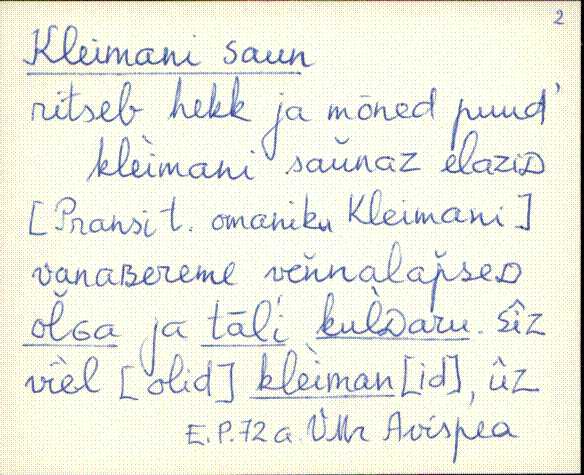 2
Kleimani saun
ritseb hekk ja mõned puud'
klèimani saŭnaz elaziD
[Pransi t. omaniku Kleimani]
vanaBereme veňnalap̌seD
olGa ja tāli kul̀Daru. sîz
vièl [olid] klèiman[id], ûz
E.P. 72 a. VMr Avispea